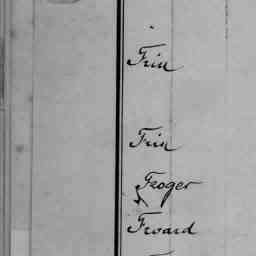 Frin
Frin
Froger
Frvard